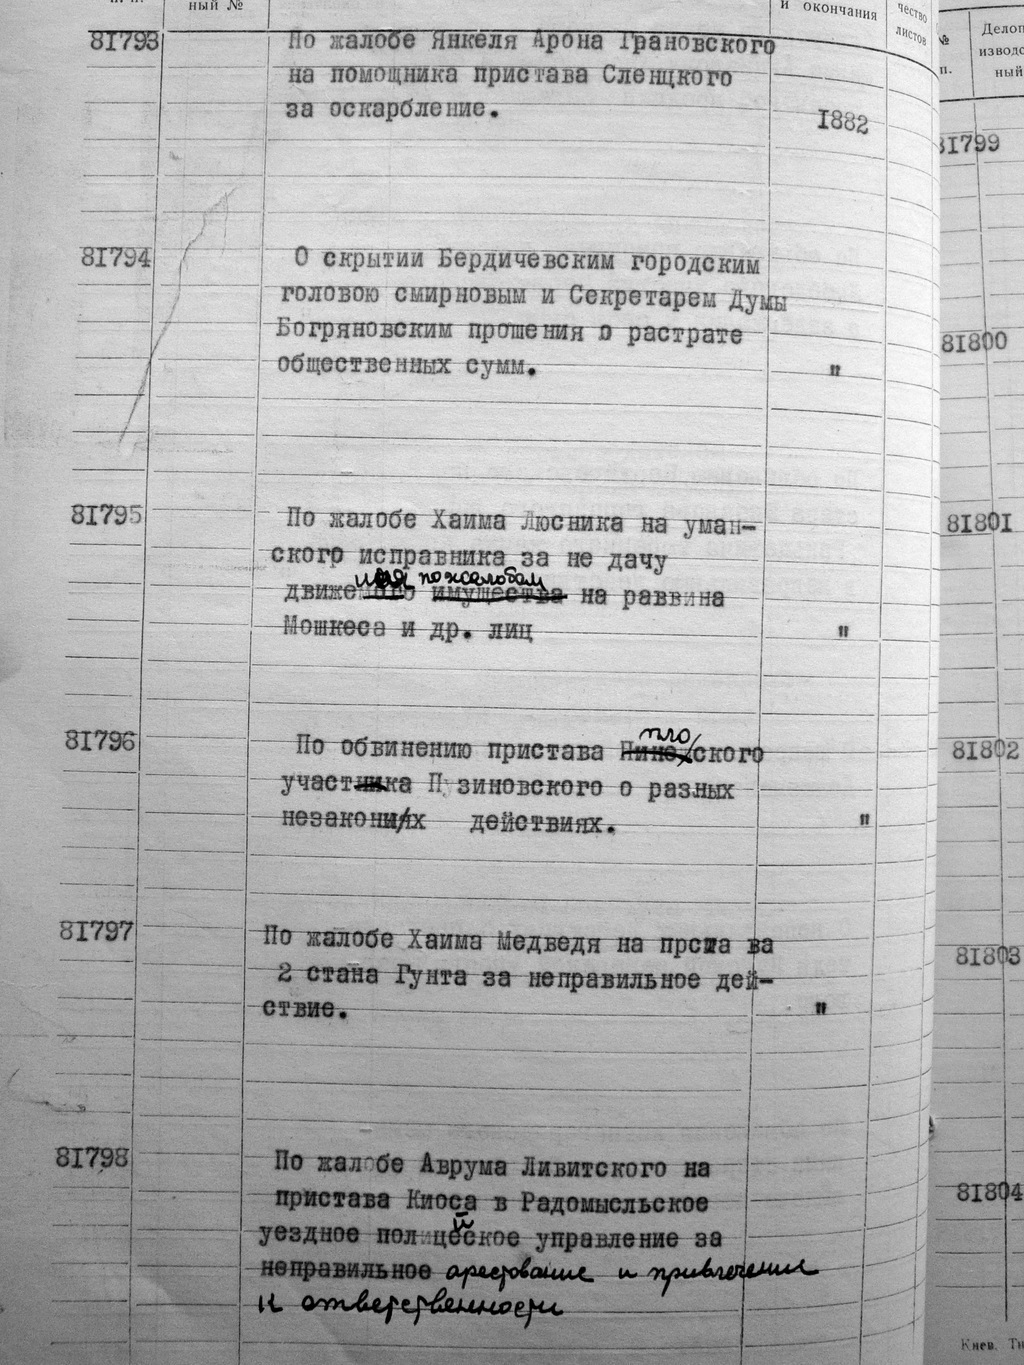 ный №
и окончания
чество
листов
81793
По жалобе Янкеля Арона Грановского
на помощника пристава Сленцкого
за оскарбление.
1882
81794
О скрытии Бердичевским городским
головою смирновым и Секретарем Думы
Богряновским прошения о растрате
общественных сумм.
"
81795
По жалобе Хаима Люсника на уман-
ского исправника за не дачу
ия по жалобам
движемого имущества на раввина
Мошкеса и др. лиц
"
81796
пло
По обвинению пристава ского
участника Пузиновского о разных
незаконых действиях.
"
81797
По жалобе Хаима Медведя на прста ва
2 стана Гунта за неправильное дей-
ствие.
"
81798
По жалобе Аврума Ливитского на
пристава Киоса в Радомысльское
уездное полицеское управление за
неправильное арестование и привлечение
к ответственности
№
п.
Делоп
изводс
ный
81799
81800
81801
81802
81803
81804
Киев. Ти